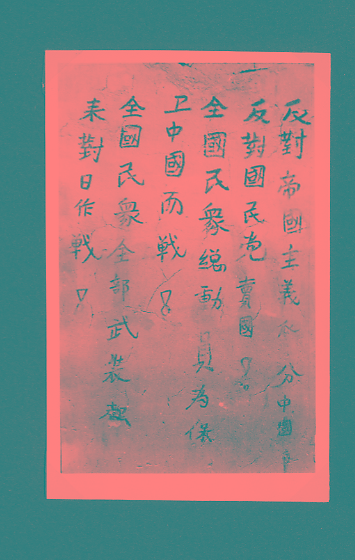 反對帝國主義瓜分中國
反對國民党賣國！
全國民衆總動員為保
卫中國而戦！
全國民衆全部武裝起
来對日作戦！